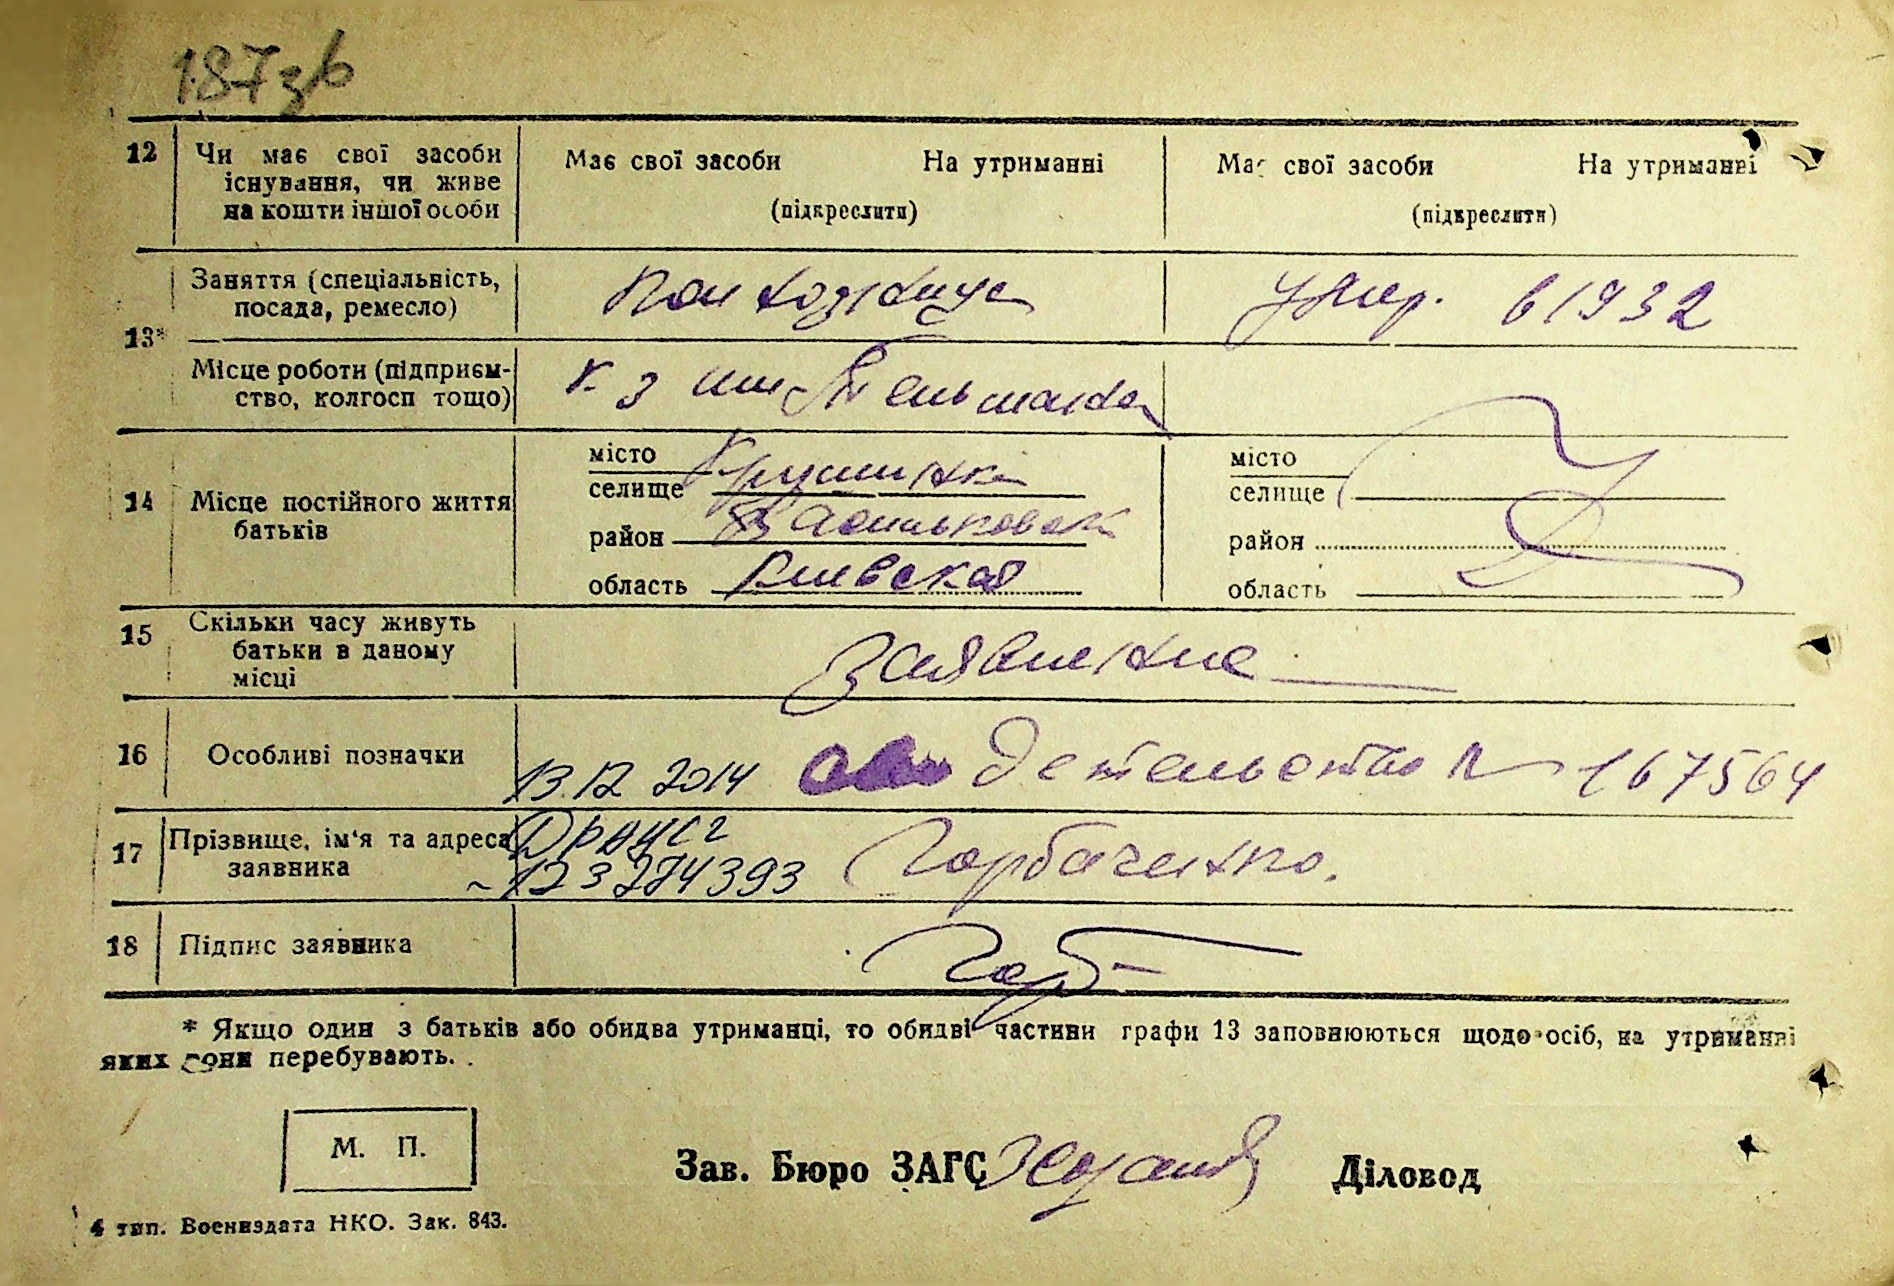 187зв
12 Чи має свої засоби існування, чи живе на кошти іншої особи
Має свої засоби На утриманні
(підкреслити)
Має свої засоби На утриманні
(підкреслити)
13*
Заняття (спеціальність, посада, ремесло)
умер. в 1932
Місце роботи (підприємство, колгосп тощо)
к-з им Тельмана
14 Місце постійного життя батьків
місто
селище Крушинка
район Васильковск
область Киевская
місто
селище
район
область
15 Скільки часу живуть батьки в даному місці
16 Особливі позначки
13.12 2014
Свидетельство № 167564
17 Прізвище, ім'я та адреса заявника
ДРАЦСГ
123274393
Горбаченко.
18 Підпис заявника
Горб
* Якщо один з батьків або обидва утриманці, то обидві частини графи 13 заповнюються щодо осіб, на утриманні
яких вони перебувають.
М. П.
Зав. Бюро ЗАГС
Діловод
4 тип. Воениздата НКО. Зак. 843.